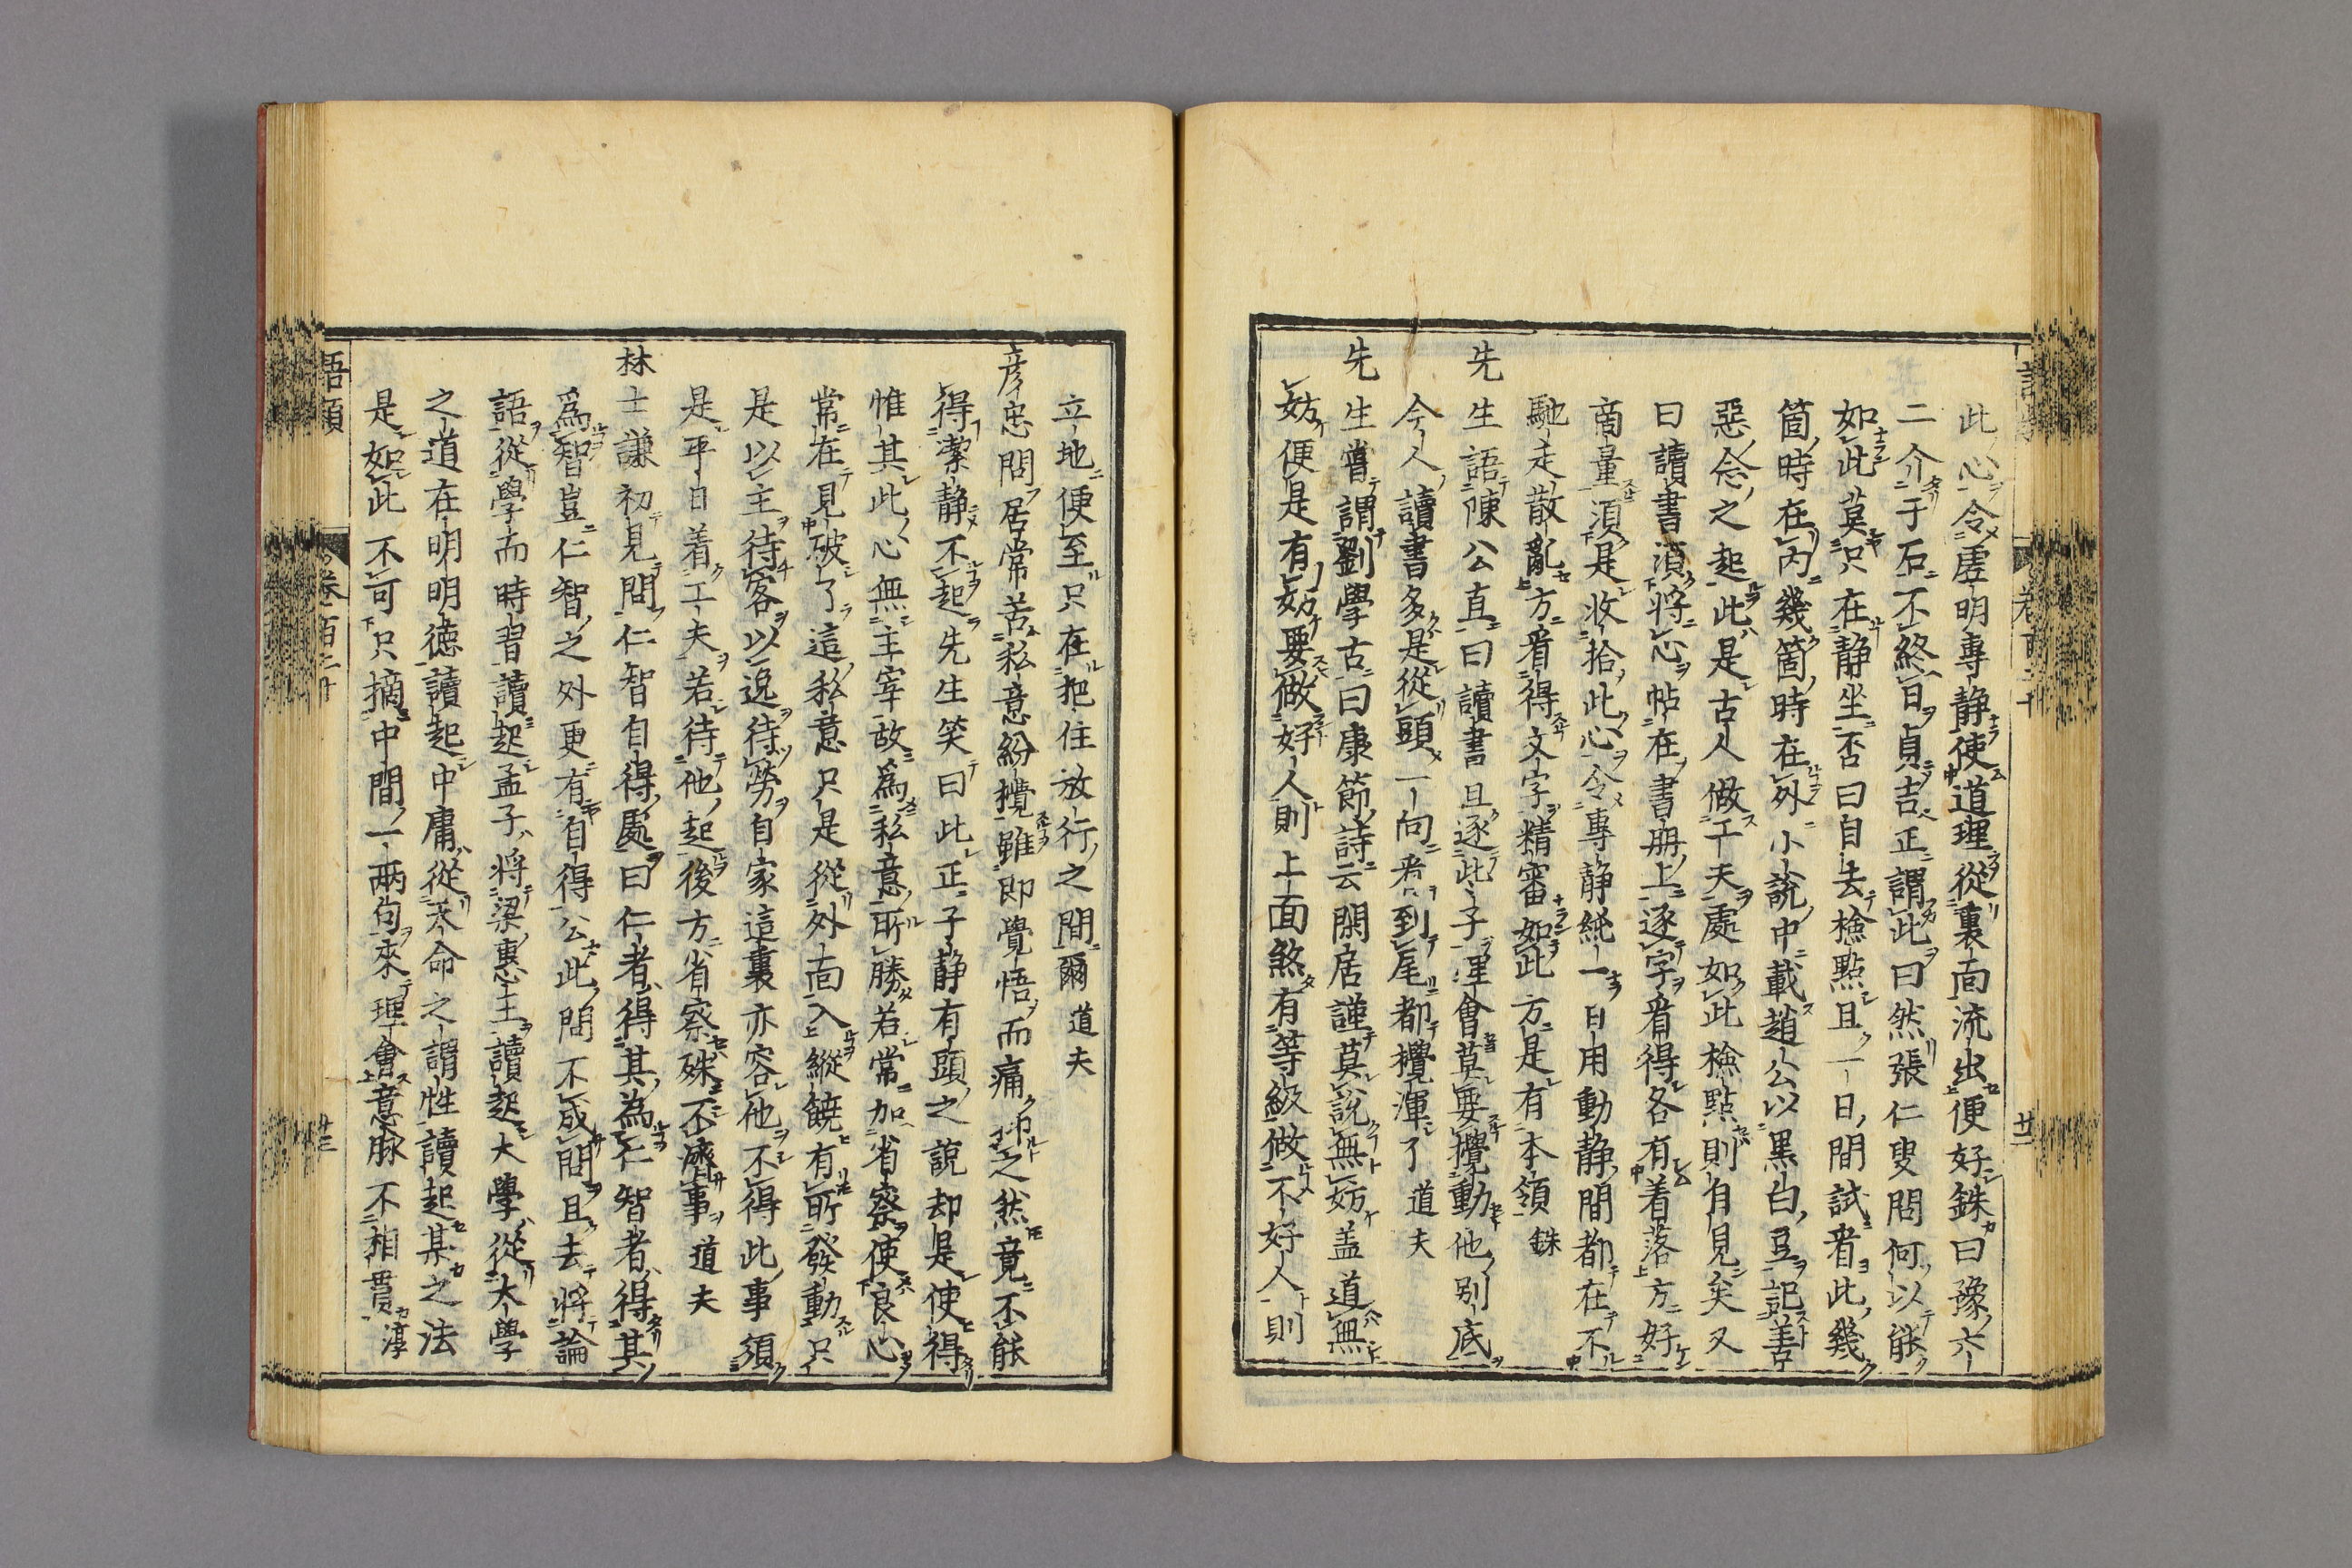 此心令虚明專静使道理從裏面流出便好銖曰豫六
二介于石不終日貞吉正謂此曰然張仁叟問何以能
如此莫只在静坐否曰自去檢點且一日間試看此幾
箇時在内幾箇時在外小說中載趙公以黒白豆記善
惡念之起此是古人做工夫處如此檢點則自見矣又
曰讀書須將心帖在書册上逐字看得各有着落方好
商量須是收拾此心令專静純一日用動静間都在不
馳走散亂方看得文字精審如此方是有本領 銖
先生語陳公直曰讀書且逐此子理會莫要攪動他別底
今人讀書多是從頭一向看到尾都攪渾了 道夫
先生嘗謂劉學古曰康節詩云閑居謹莫說無妨盖道無
妨便是有妨要做好人則上面煞有等級做不好人則
立地便至只在把住放行之間爾 道夫
彦忠問居常苦私意紛攪雖即覺悟而痛抑之然竟不能
得潔静不起先生笑曰此正子静有頭之說却是使得
惟其此心無主宰故為私意所勝若常加省察使良心
常在見破了這私意只是從外面入縱饒有所發動只
是以主待客以逸待勞自家這裏亦容他不得此事須
是平日着工夫若待他起後方省察殊不濟事 道夫
林士謙初見問仁智自得處曰仁者得其為仁智者得其
爲智豈仁智之外更有自得公此問不成問且去將論
語從學而時習讀起孟子將梁惠王讀起大學從大學
之道在明明德讀起中庸從天命之謂性讀起某之法
是如此不可只摘中間一兩句來理會意脉不相貫 淳
語類
卷百二十
廿二
語類
卷百二十
廿三